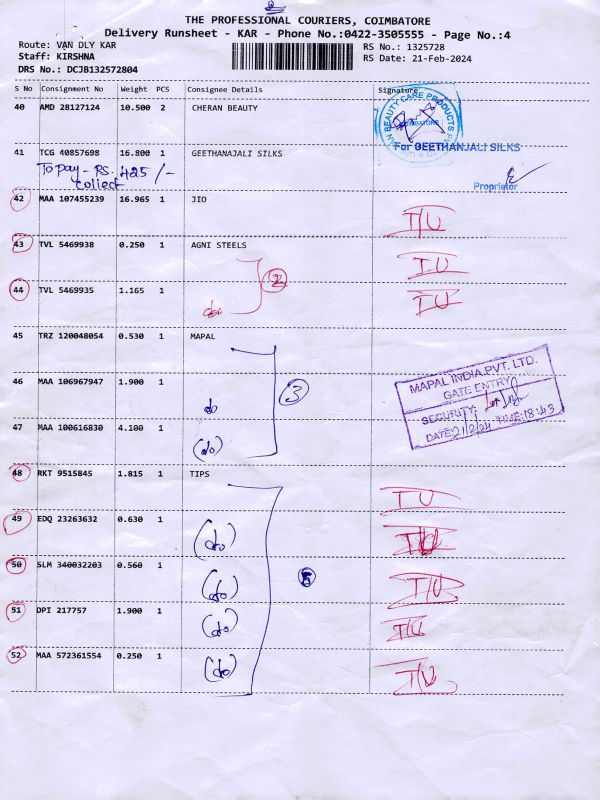 THE PROFESSIONAL COURIERS, COIMBATORE
Delivery Runsheet - KAR - Phone No.:0422-3505555 - Page No.:4
Route: VAN DLY KAR
RS No.: 1325728
Staff: KIRSHNA
RS Date: 21-Feb-2024
DRS No.: DCJB132572804
S No Consignment No Weight PCS Consignee Details Signature
40 AMD 28127124 10.500 2 CHERAN BEAUTY
BEAUTY CARE PRODUCTS
COIMBATORE
41 TCG 40857698 16.800 1 GEETHANAJALI SILKS
For GEETHANJALI SILKS
To pay - RS. 425 /-
collect
Proprietor
42 MAA 107455239 16.965 1 JIO
T/U
43 TVL 5469938 0.250 1 AGNI STEELS
T U
2
44 TVL 5469935 1.165 1
do
T U
45 TRZ 120048054 0.530 1 MAPAL
46 MAA 106967947 1.900 1
do
3
MAPAL INDIA PVT. LTD.
GATE ENTRY
SECURITY:
DATE: TIME: 18:43
47 MAA 100616830 4.100 1
(do)
48 RKT 9515845 1.815 1 TIPS
T U
49 EDQ 23263632 0.630 1
(do)
T/U
50 SLM 340032203 0.560 1
(do)
5
T/U
51 DPI 217757 1.900 1
(do)
T/U
52 MAA 572361554 0.250 1
(do)
T/U